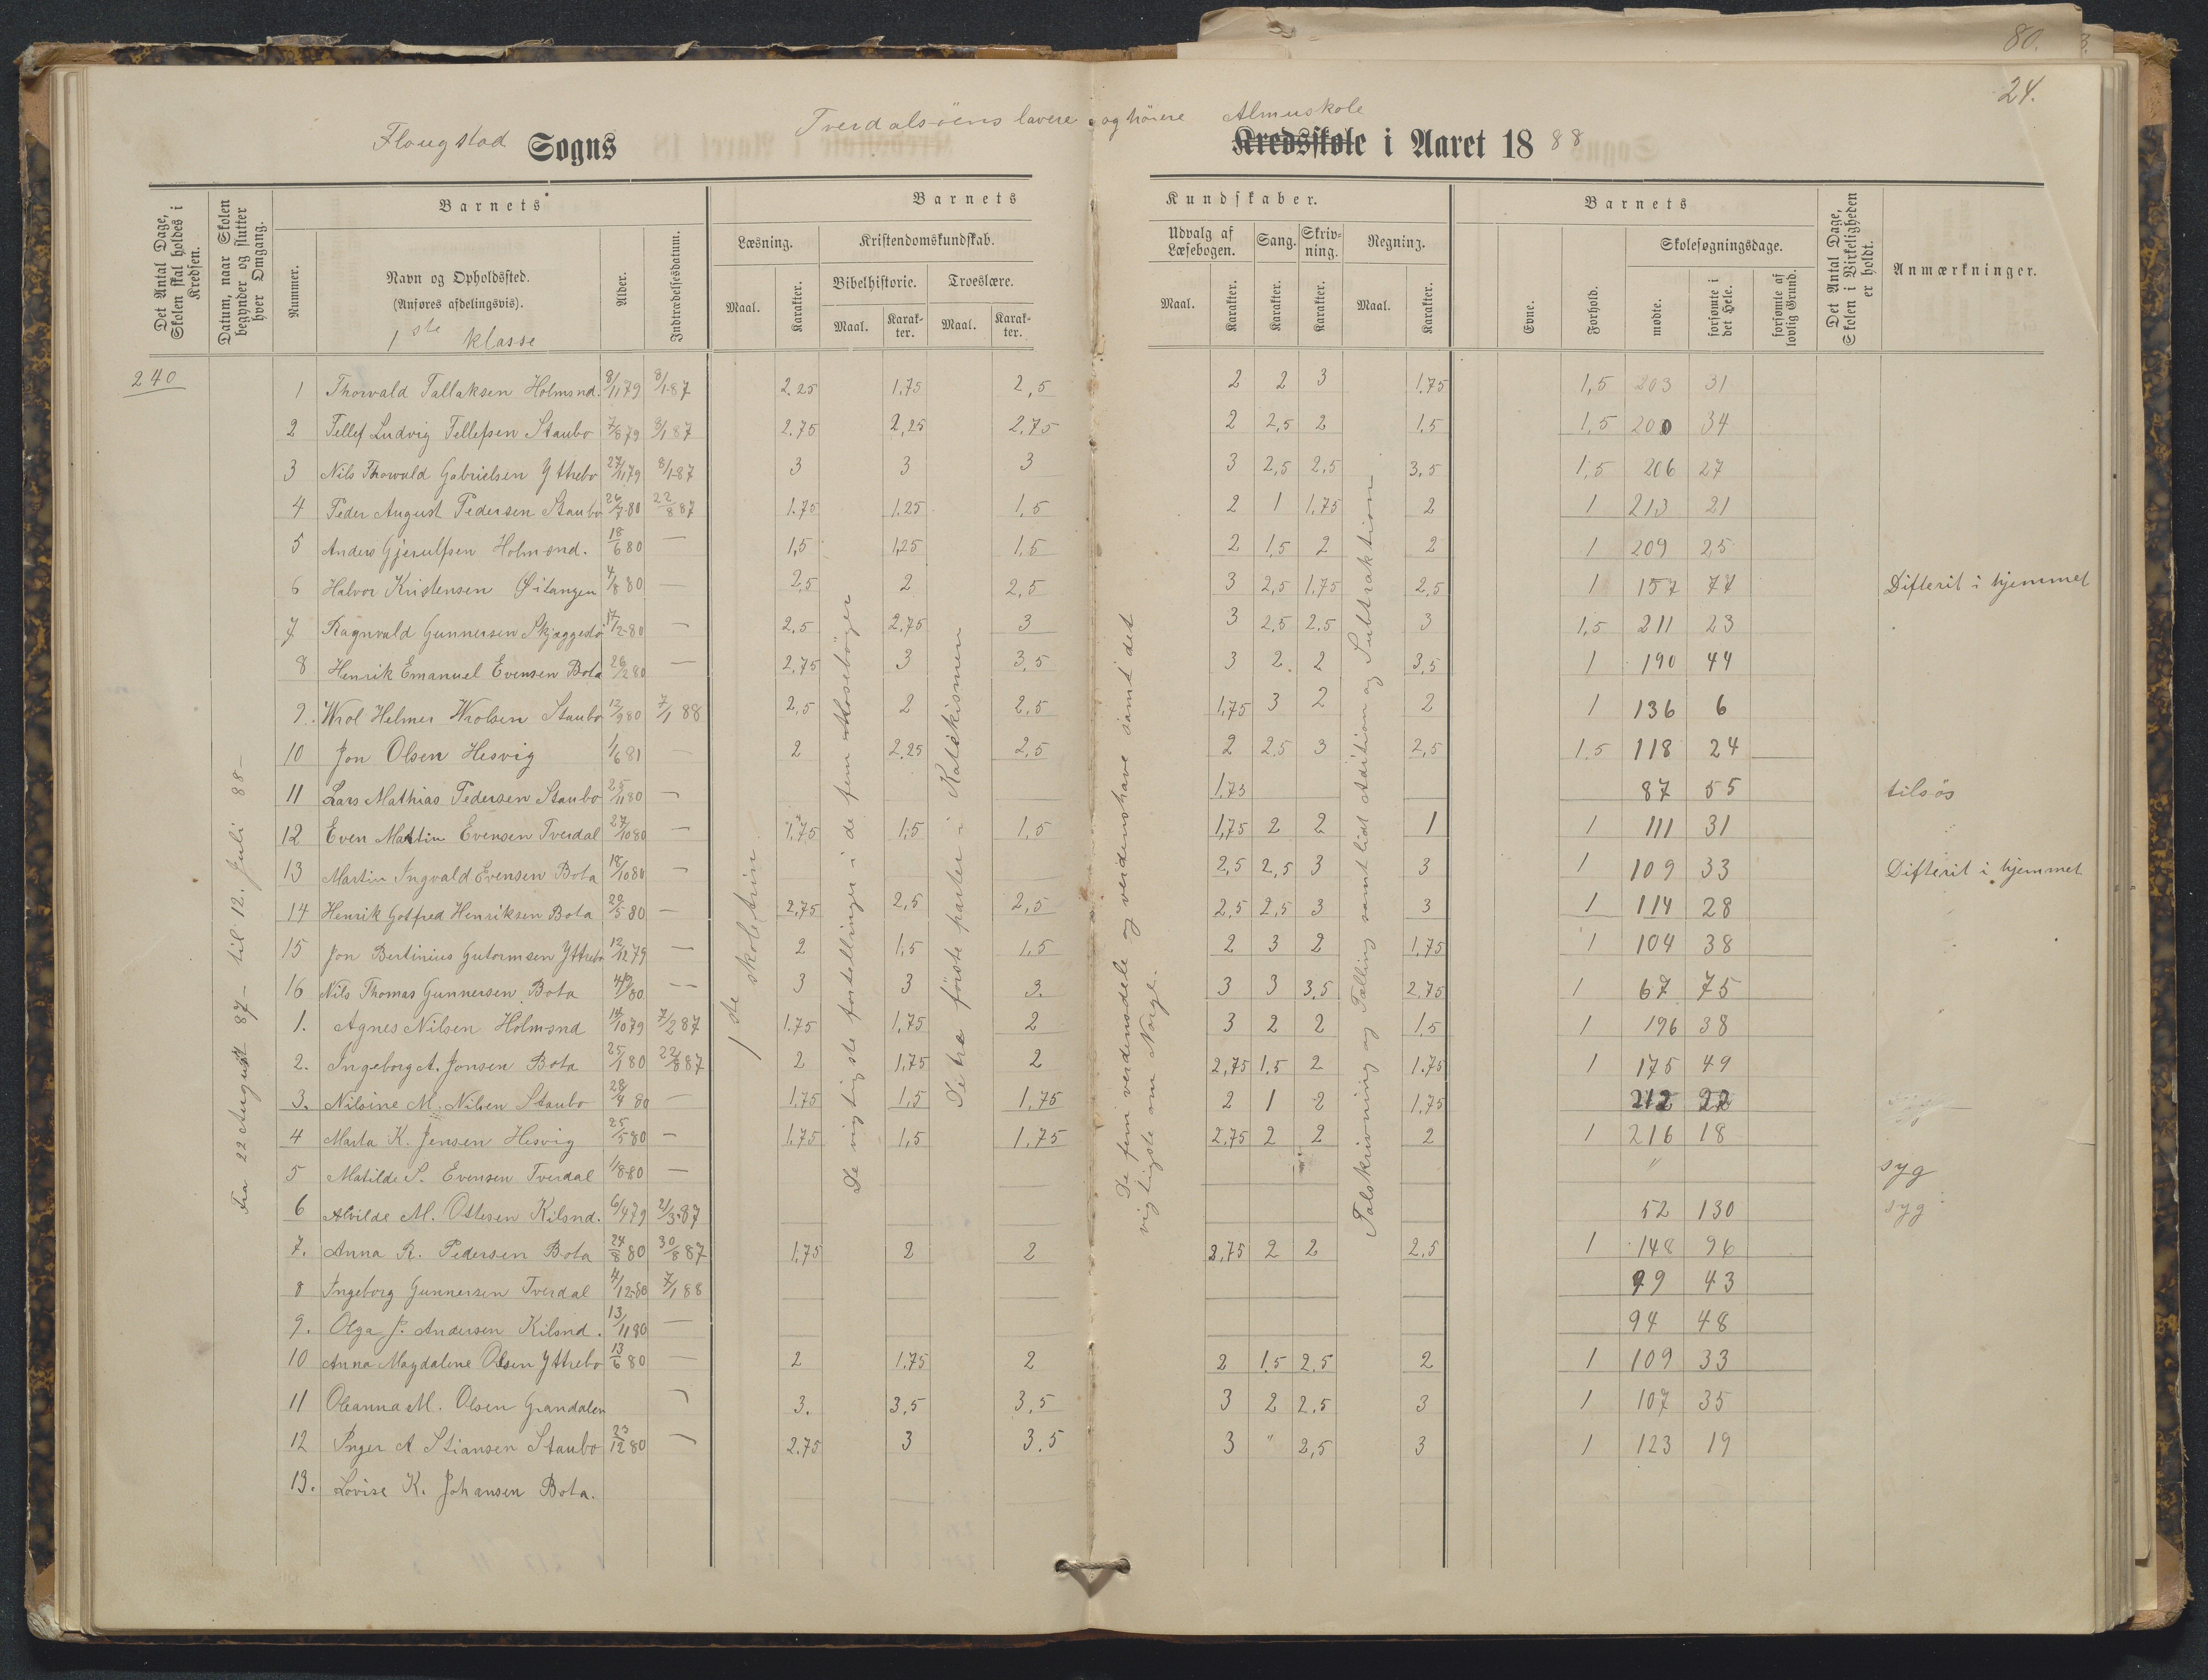 80.
24.
Flougstad Sogns Tverdalsöens lavere og høiere Almuskole
Kredsskole i Aaret 1888
Det Antal Dage, Skolen skal holdes i Kredsen.
Datum, naar Skolen begynder og slutter hver Omgang.
Barnets
Nummer.
Navn og Opholdssted.
(Anføres afdelingsvis).
1ste klasse
Alder.
Indtrædelsesdatum.
Barnets Kundskaber.
Læsning. Maal. Karakter.
Kristendomskundskab.
Bibelhistorie. Maal. Karakter.
Troeslære. Maal. Karakter.
Udvalg af Læsebogen. Maal. Karakter.
Sang. Karakter.
Skrivning. Karakter.
Regning. Maal. Karakter.
Barnets
Evne.
Forhold.
Skolesøgningsdage.
mødte.
forsømte i det Hele.
forsømte af lovlig Grund.
Det Antal Dage, Skolen i Virkeligheden er holdt.
Anmærkninger.
240
Fra 22 August 87 – til 12. Juli 88 –
1 ste skoletrin
De vigtigste fortellinger i de fem Mosebøger
De tre første parter i Katekismen
De fem verdensdele og verdenshave samt det vigtigste om Norge.
Talskrivning og Tælling samt lidt Adition og Subtraktion
1 Thorvald Tallaksen Holmsnd. 8/11 79 8/1 87 2.25 1.75 2,5 2 2 3 1.75 1,5 203 31
2 Tellef Ludvig Tellefsen Staubo 7/8 79 8/1 87 2.75 2,25 2.75 2 2,5 2 1,5 1,5 200 34
3 Nils Thorvald Gabrielsen Yttrebo 27/11 79 8/1 87 3 3 3 3 2,5 2,5 3,5 1,5 206 27
4 Peder August Pedersen Staubo 26/7 80 22/8 87 1.75 1.25 1,5 2 1 1,75 2 1 213 21
5 Anders Gjerulfsen Holmsnd. 18/6 80 — 1,5 1,25 1,5 2 1,5 2 2 1 209 25
6 Halvor Kristensen Øitangen 4/8 80 — 2,5 2 2,5 3 2,5 1.75 2,5 1 157 77 Difterit i hjemmet
7 Ragnvald Gunnersen Skjæggedø 17/2 80 — 2,5 2.75 3 3 2.5 2.5 3 1,5 211 23
8 Henrik Emanuel Evensen Bota 26/2 80 — 2,75 3 3,5 3 2. 2 3,5 1 190 44
9. Wrol Helmer Wrolsen Staubo 12/9 80 7/1 88 2,5 2 2,5 1,75 3 2 2 1 136 6
10 Jon Olsen Hesvig 1/6 81 — 2 2.25 2,5 2 2.5 3 2,5 1.5 118 24
11 Lars Mathias Pedersen Staubo 25/11 80 — 1,75 87 55 tilsøs
12 Even Martin Evensen Tverdal 27/10 80 — 1.75 1.5 1,5 1,75 2 2 1 1 111 31
13 Martin Ingvald Evensen Bota 18/10 80 — 2,5 2,5 3 3 1 109 33 Difterit i hjemmet
14 Henrik Gotfred Henriksen Bota 29/5 80 — 2,75 2,5 2,5 2,5 2,5 3 3 1 114 28
15 Jon Bertinius Gutormsen Yttrebo 12/12 79 — 2 1,5 1,5 2 3 2 1,75 1 104 38
16 Nils Thomas Gunnersen Bota — 3 3 3. 3 3 3,5 2,75 1 67 75
1. Agnes Nilsen Holmsnd 14/10 79 7/2 87 1.75 1,75 2 3 2 2 1.5 1 196 38
2. Ingeborg A. Jonsen Bota 25/1 80 22/8 87 2 1,75 2 2,75 1.5 2 1.75 1 175 49
3. Nilsine M. Nilsen Staubo 28/4 80 — 1.75 1,5 1,75 2 1 2 1.75 212 22
4 Marta K. Jensen Hesvig 25/5 80 — 1.75 1,5 1.75 2.75 2 2 2 1 216 18
5 Matilde S. Evensen Tverdal 1/8 80 — " syg
6 Alvilde M. Ottesen Kilsnd. 6/4 79 21/3 87 52 130 syg
7. Anna R. Pedersen Bota 24/8 80 30/8 87 1,75 2 2 2,75 2 2 2,5 1 148 96
8 Ingeborg Gunnersen Tverdal 4/12 80 7/1 88 99 43
9. Olga J. Andersen Kilsnd. 13/11 80 — 94 48
10 Anna Magdalene Olsen Yttrebo 13/6 80 — 2 1.75 2 2 1.5 2.5 2 1 109 33
11 Oleanna M. Olsen Grandalen — 3. 3,5 3,5 3 2 2.5 3 1 107 35
12 Inger A Stiansen Staubo 23/12 80 — 2.75 3 3.5 3 " 2,5 3 1 123 19
13. Lovise K. Johansen Bota.